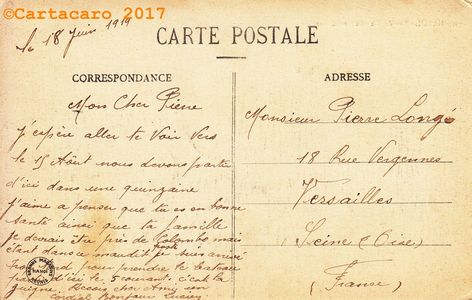 ©Cartacaro 2017
le 18 Juin 1919
CARTE POSTALE
CORRESPONDANCE
Mon Cher Pierre
J'espère aller te Voir Vers
le 15 Août nous devons partir
d'ici dans une quinzaine
J'aime a penser que tu es en bonne
santé ainsi que ta famille
Je devais être près de Colombo mais
étant dans ce maudit je suis arrivé
trop tard pour prendre le bateau
d'ici le 5 courant c'est la
guigne. Reçois cher Ami mon
cordial Bonjour Lucien
ADRESSE
Monsieur Pierre Longé
18 Rue Vergennes
Versailles
Seine (Oise)
(France)